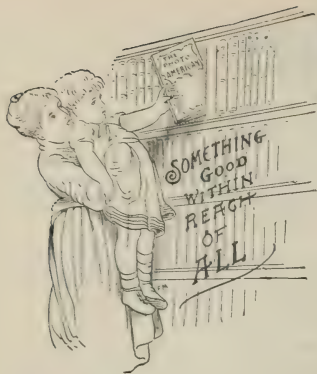 THE
PHOTO
AMERICAN
SOMETHING
GOOD
WITHIN
REACH
OF
ALL